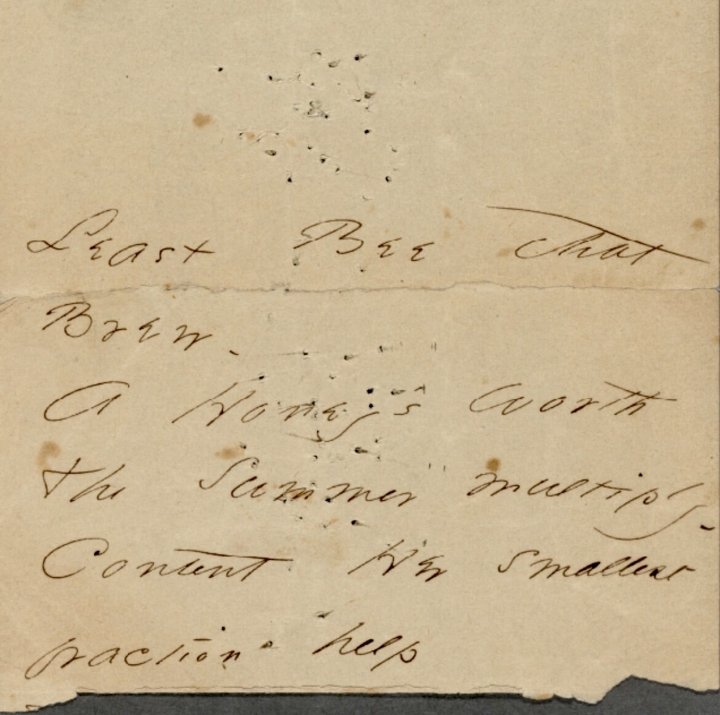 Least Bee that
Brew -
A Honey's worth
the Summer multiply -
Content Her smallest
fraction help